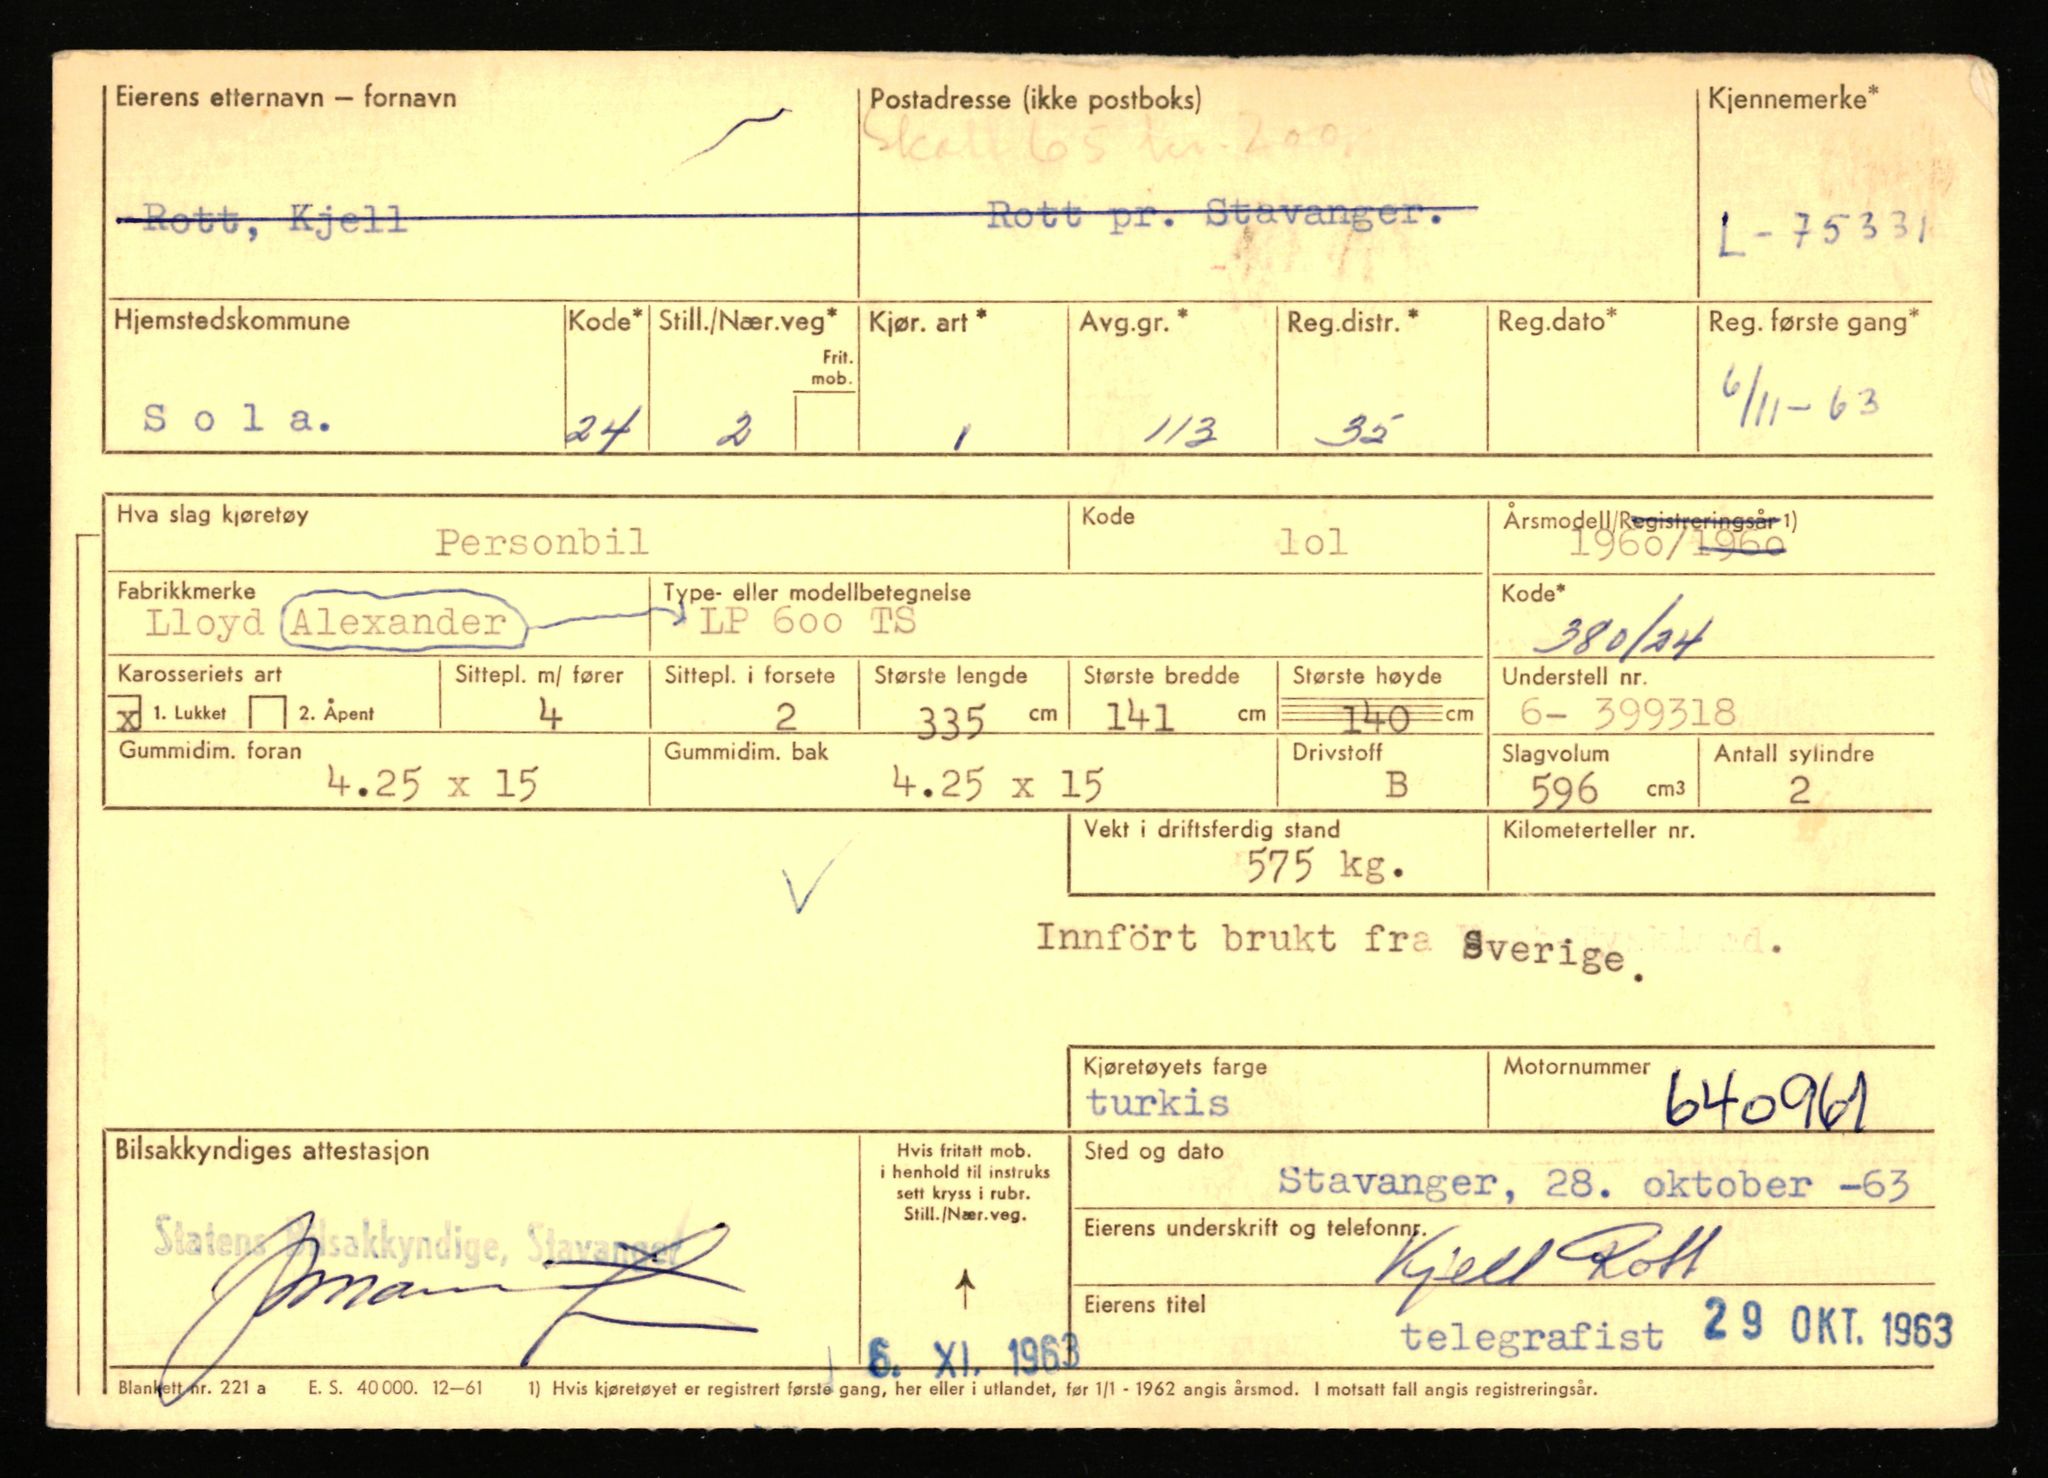 Eierens etternavn – fornavn Postadresse (ikke postboks) Kjennemerke*
Skatt 65 kr. 200.
Rott, Kjell Rott pr. Stavanger. L - 75331
Hjemstedskommune Kode* Still./Nær.veg* Kjør. art* Avg.gr.* Reg.distr.* Reg.dato* Reg. første gang*
Frit.
mob.
Sola. 24 2 1 113 35 6/11-63
Hva slag kjøretøy Kode Årsmodell/Registreringsår 1)
Personbil 1o1 196o/196o
Fabrikkmerke Type- eller modellbetegnelse Kode*
Lloyd Alexander LP 6oo TS 380/24
Karosseriets art Sittepl. m/ fører Sittepl. i forsete Største lengde Største bredde Største høyde Understell nr.
x 1. Lukket 2. Åpent 4 2 335 cm 141 cm 140 cm 6- 399318
Gummidim. foran Gummidim. bak Drivstoff Slagvolum Antall sylindre
4.25 x 15 4.25 x 15 B 596 cm3 2
Vekt i driftsferdig stand Kilometerteller nr.
575 kg.
Innfört brukt fra Sverige.
Kjøretøyets farge Motornummer
turkis 640961
Bilsakkyndiges attestasjon Hvis fritatt mob. Sted og dato
i henhold til instruks
sett kryss i rubr. Stavanger, 28. oktober -63
Still./Nær.veg.
Statens Bilsakkyndige, Stavanger Eierens underskrift og telefonnr.
Kjell Rott
↑ Eierens titel
telegrafist 29 OKT. 1963
6. XI. 1963
Blankett nr. 221 a E. S. 40 000. 12–61 1) Hvis kjøretøyet er registrert første gang, her eller i utlandet, før 1/1 - 1962 angis årsmod. I motsatt fall angis registreringsår.